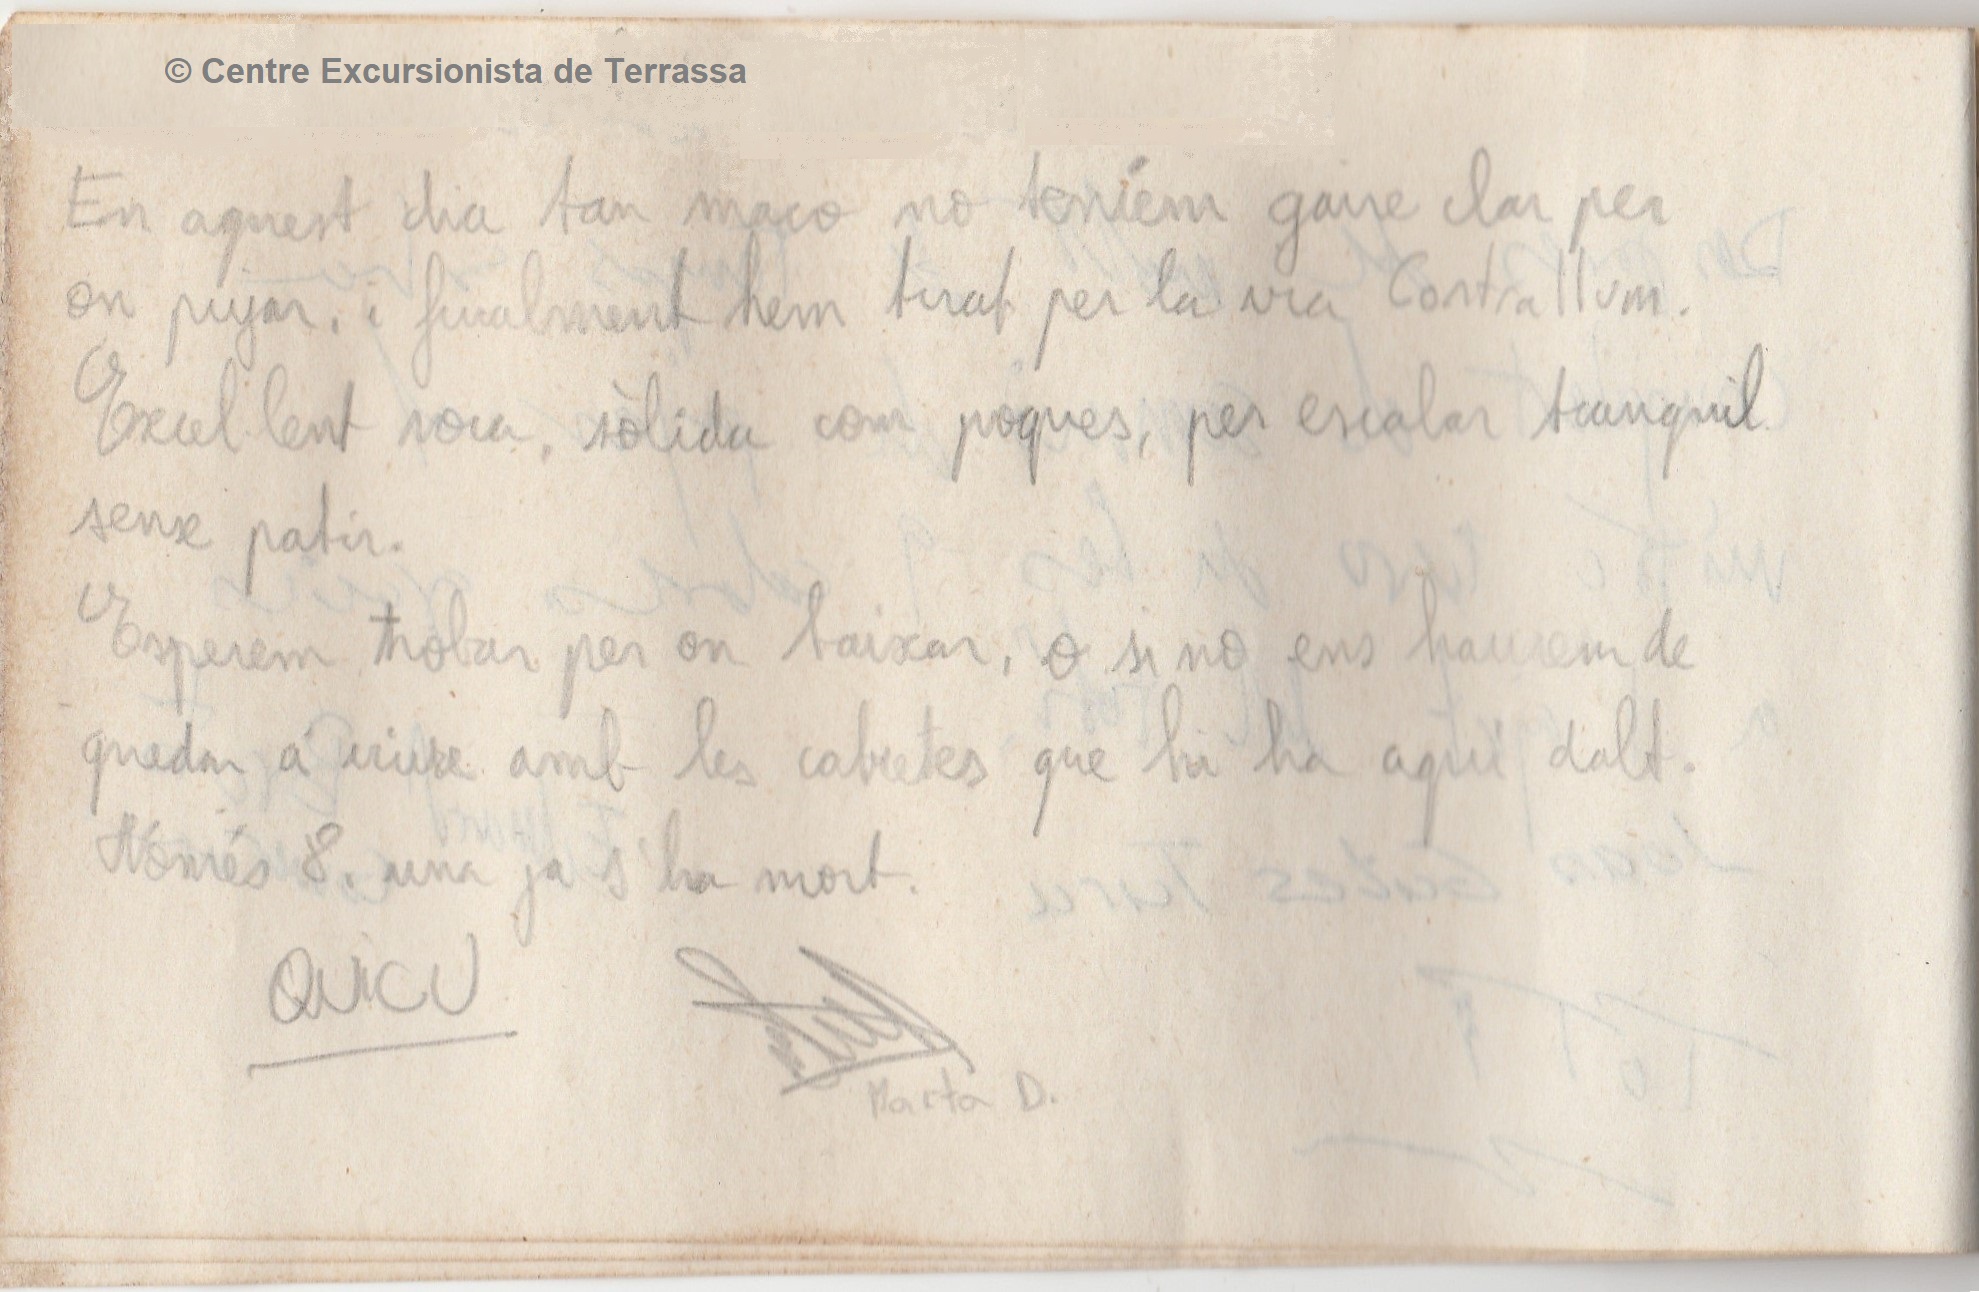 © Centre Excursionista de Terrassa
En aquest dia tan maco no teníem gaire clar per
on pujar, i finalment hem tirat per la via Contrallum.
Excel·lent roca, sòlida com poques, per escalar tranquil
sense patir.
Esperem trobar per on baixar, o si no ens haurem de
quedar a viure amb les cabretes que hi ha aquí dalt.
Només 8, una ja s'ha mort.
QUICU
Marta D.